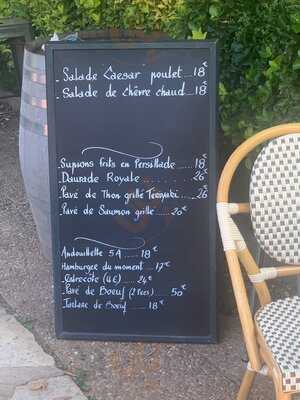 Salade Caesar poulet ..... 18€
Salade de Chèvre chaud ..... 18€
Supions frits en Persillade ..... 18€
Daurade Royale ..... 26€
Pavé de Thon grillé Teriyaki ..... 26€
Pavé de Saumon grillé ..... 26€
Andouillette 5A ..... 18€
Hamburger du moment ..... 17€
Entrecôte (U€) ..... 24€
Pavé de Boeuf (2 Pers) 50€
Tartare de Boeuf ..... 18€